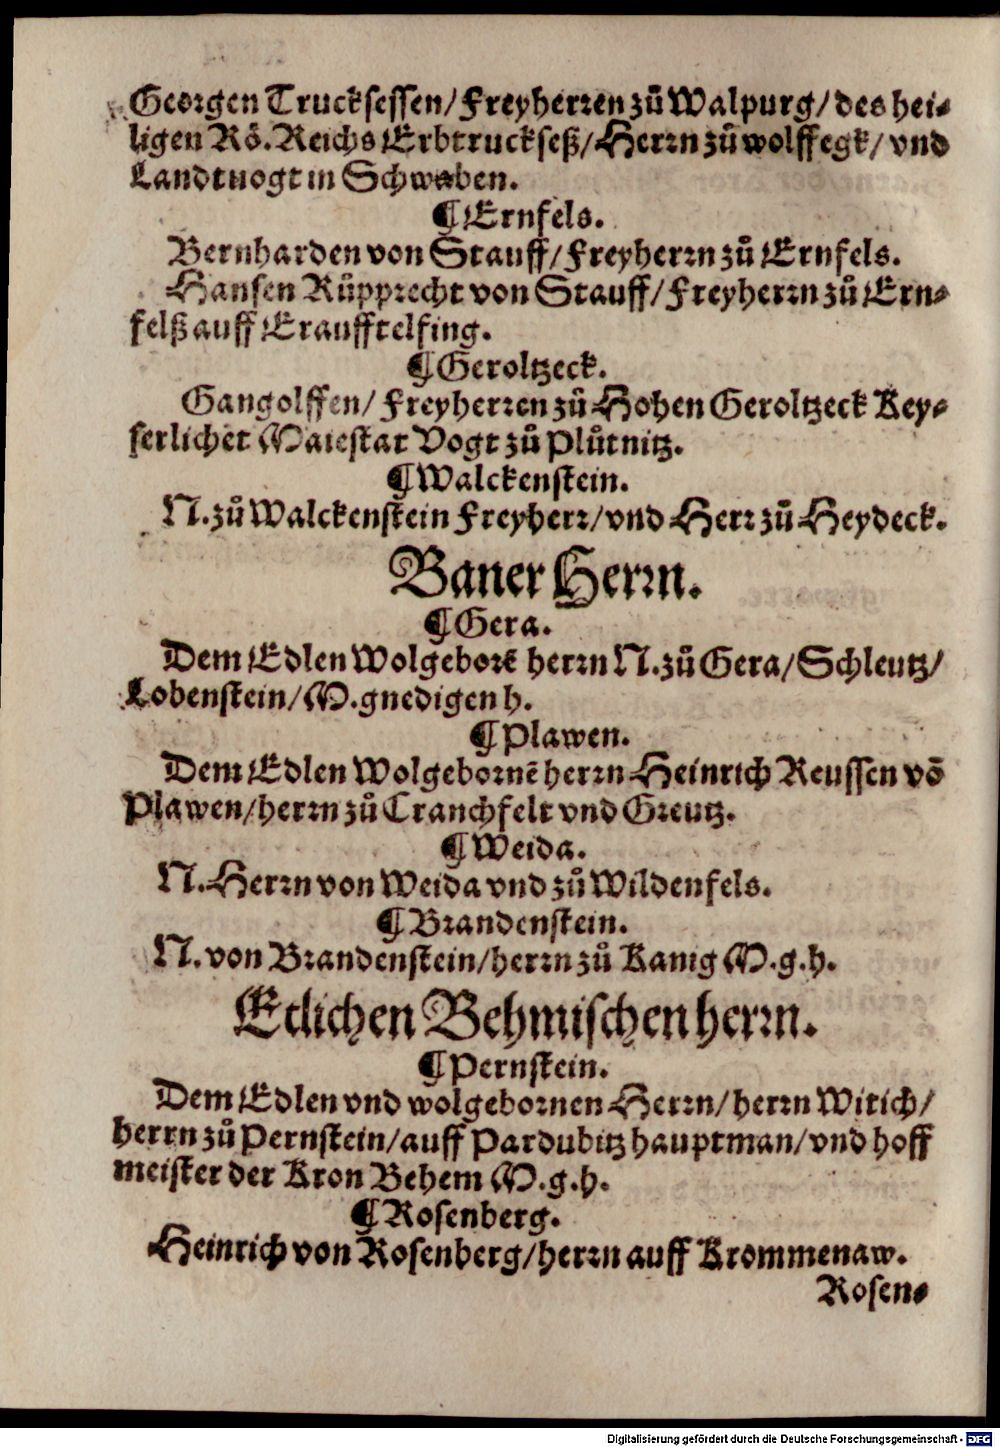 Georgen Truckſeſſen/Freyherꝛen zů Walpurg/des hei⸗
ligen Rö. Reichs Erbtruckſeß/Herꝛn zů wolffegk/ vnd
Landtuogt in Schwaben.
¶Ernfels.
Bernharden von Stauff/Freyherꝛn zů Ernfels.
Hanſen Růppꝛecht von Stauff/Freyherꝛn zů Ern⸗
felß auff Eraufftelfing.
¶Geroltzeck.
Gangolffen/ Freyherꝛen zů Hohen Geroltzeck Key⸗
ſerlicher Maieſtat Vogt zů Plůtnitz.
¶Walckenſtein.
N. zů Walckenſtein Freyherꝛ/vnd Herꝛ zů Heydeck.
Baner Herꝛn.
¶Gera.
Dem Edlen Wolgeboꝛē herꝛn N. zů Gera/Schleutz/
Lobenſtein/M. gnedigen h.
¶Plawen.
Dem Edlen Wolgeboꝛnē herꝛn Heinrich Reuſſen vō
Plawen/herꝛn zů Cranchfelt vnd Gꝛeutz.
¶Weida.
N. Herꝛn von Weida vnd zů Wildenfels.
¶Bꝛandenſtein.
N. von Bꝛandenſtein/herꝛn zů Ranig M.g.h.
Etlichen Behmiſchen herꝛn.
¶Pernſtein.
Dem Edlen vnd wolgeboꝛnen Herꝛn/herꝛn Witich/
herꝛn zů Pernſtein/auff Pardubitz hauptman/vnd hoff
meiſter der Kron Behem M.g.h.
¶Roſenberg.
Heinrich von Roſenberg/herꝛn auff Krommenaw.
Roſen⸗
Digitalisierung gefördert durch die Deutsche Forschungsgemeinschaft - DFG